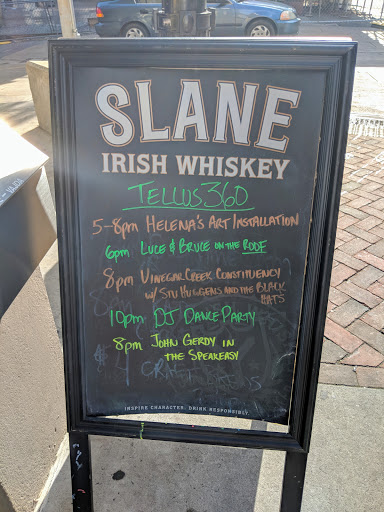 SLANE
IRISH WHISKEY
TELLUS360
5-8pm HELENA'S ART INSTALLATION
6pm LUCE & BRUCE ON THE ROOF
8pm VINEGAR CREEK CONSTITUENCY
W/ STU HUGGENS AND THE BLACK
HATS
10pm DJ DANCE PARTY
8pm JOHN GERDY IN
THE SPEAKEASY
INSPIRE CHARACTER. DRINK RESPONSIBLY.